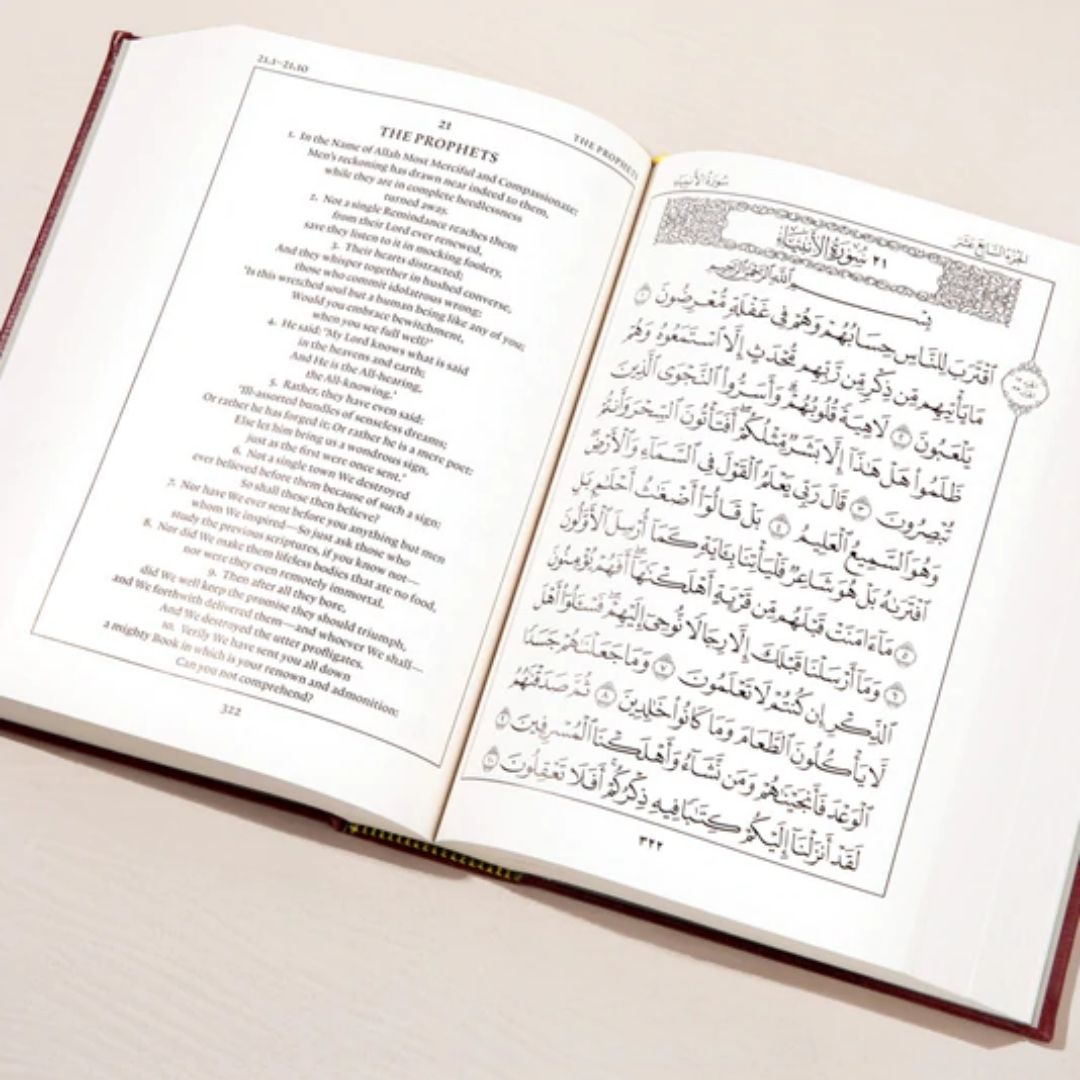 21.1–21.10
THE PROPHETS
21
THE PROPHETS
1. In the Name of Allah Most Merciful and Compassionate:
Men's reckoning has drawn near indeed to them,
while they are in complete heedlessness
turned away.
2. Not a single Remindance reaches them
from their Lord ever renewed,
save they listen to it in mocking foolery,
3. Their hearts distracted;
And they whisper together in hushed converse,
those who commit idolatrous wrong:
'Is this wretched soul but a human being like any of you;
Would you embrace bewitchment,
when you see full well?'
4. He said: 'My Lord knows what is said
in the heavens and earth;
And He is the All-hearing,
the All-knowing.'
5. Rather, they have even said:
'Ill-assorted bundles of senseless dreams;
Or rather he has forged it; Or rather he is a mere poet:
Else let him bring us a wondrous sign,
just as the first were once sent.'
6. Not a single town We destroyed
ever believed before them because of such a sign;
So shall these then believe?
7. Nor have We ever sent before you anything but men
whom We inspired—So just ask those who
study the previous scriptures, if you know not—
8. Nor did We make them lifeless bodies that ate no food,
nor were they even remotely immortal.
9. Then after all they bore,
did We well keep the promise they should triumph,
and We forthwith delivered them—and whoever We shall—
And We destroyed the utter profligates.
10. Verily We have sent you all down
a mighty Book in which is your renown and admonition:
Can you not comprehend?
322
سُورَةُ الأَنبِيَاء
الجزء السابع عشر
٢١ سُورَةُ الأَنْبِيَاءِ
بِسْمِ اللَّهِ الرَّحْمَٰنِ الرَّحِيمِ
ٱقْتَرَبَ لِلنَّاسِ حِسَابُهُمْ وَهُمْ فِى غَفْلَةٍ مُّعْرِضُونَ ١
مَا يَأْتِيهِم مِّن ذِكْرٍ مِّن رَّبِّهِم مُّحْدَثٍ إِلَّا ٱسْتَمَعُوهُ وَهُمْ
يَلْعَبُونَ ٢ لَاهِيَةً قُلُوبُهُمْ ۗ وَأَسَرُّوا۟ ٱلنَّجْوَى ٱلَّذِينَ
ظَلَمُوا۟ هَلْ هَٰذَآ إِلَّا بَشَرٌ مِّثْلُكُمْ ۖ أَفَتَأْتُونَ ٱلسِّحْرَ وَأَنتُمْ
تُبْصِرُونَ ٣ قَالَ رَبِّى يَعْلَمُ ٱلْقَوْلَ فِى ٱلسَّمَآءِ وَٱلْأَرْضِ ۖ
وَهُوَ ٱلسَّمِيعُ ٱلْعَلِيمُ ٤ بَلْ قَالُوٓا۟ أَضْغَٰثُ أَحْلَٰمٍۭ بَلِ
ٱفْتَرَىٰهُ بَلْ هُوَ شَاعِرٌ فَلْيَأْتِنَا بِـَٔايَةٍ كَمَآ أُرْسِلَ ٱلْأَوَّلُونَ
٥ مَآ ءَامَنَتْ قَبْلَهُم مِّن قَرْيَةٍ أَهْلَكْنَٰهَآ ۖ أَفَهُمْ يُؤْمِنُونَ
٦ وَمَآ أَرْسَلْنَا قَبْلَكَ إِلَّا رِجَالًا نُّوحِىٓ إِلَيْهِمْ ۖ فَسْـَٔلُوٓا۟ أَهْلَ
ٱلذِّكْرِ إِن كُنتُمْ لَا تَعْلَمُونَ ٧ وَمَا جَعَلْنَٰهُمْ جَسَدًا
لَّا يَأْكُلُونَ ٱلطَّعَامَ وَمَا كَانُوا۟ خَٰلِدِينَ ٨ ثُمَّ صَدَقْنَٰهُمُ
ٱلْوَعْدَ فَأَنجَيْنَٰهُمْ وَمَن نَّشَآءُ وَأَهْلَكْنَا ٱلْمُسْرِفِينَ ٩
لَقَدْ أَنزَلْنَآ إِلَيْكُمْ كِتَٰبًا فِيهِ ذِكْرُكُمْ ۖ أَفَلَا تَعْقِلُونَ ١٠
٣٢٢